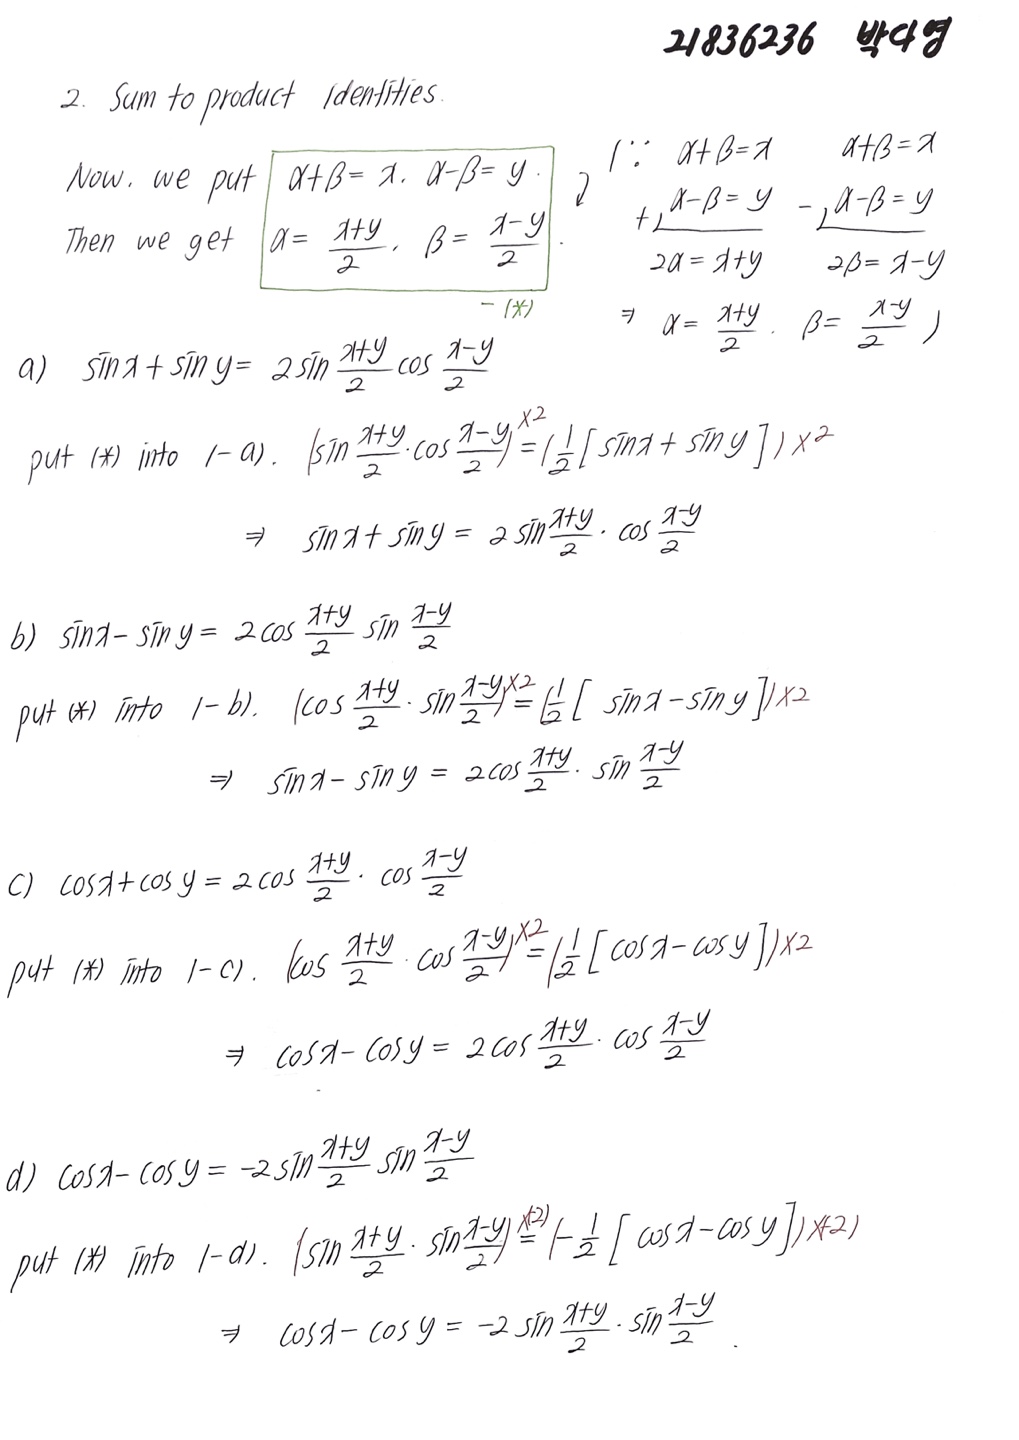 21836236 박다영
2. Sum to product identities.
Now, we put α+β = x, α-β = y.
Then we get α = (x+y)/2, β = (x-y)/2.
- (*)
(∵ α+β = x   α+β = x
+) α-β = y   -) α-β = y
2α = x+y   2β = x-y
⇒ α = (x+y)/2. β = (x-y)/2 )
a) sinx + siny = 2 sin (x+y)/2 cos (x-y)/2
put (*) into 1-a). (sin (x+y)/2 · cos (x-y)/2) ×2 = (1/2 [ sinx + siny ]) ×2
⇒ sinx + siny = 2 sin (x+y)/2 · cos (x-y)/2
b) sinx - siny = 2 cos (x+y)/2 sin (x-y)/2
put (*) into 1-b). (cos (x+y)/2 · sin (x-y)/2) ×2 = (1/2 [ sinx - siny ]) ×2
⇒ sinx - siny = 2 cos (x+y)/2 · sin (x-y)/2
c) cosx + cosy = 2 cos (x+y)/2 · cos (x-y)/2
put (*) into 1-c). (cos (x+y)/2 · cos (x-y)/2) ×2 = (1/2 [ cosx - cosy ]) ×2
⇒ cosx - cosy = 2 cos (x+y)/2 · cos (x-y)/2
d) cosx - cosy = -2 sin (x+y)/2 sin (x-y)/2
put (*) into 1-d). (sin (x+y)/2 · sin (x-y)/2) ×(-2) = (-1/2 [ cosx - cosy ]) ×(-2)
⇒ cosx - cosy = -2 sin (x+y)/2 · sin (x-y)/2 .